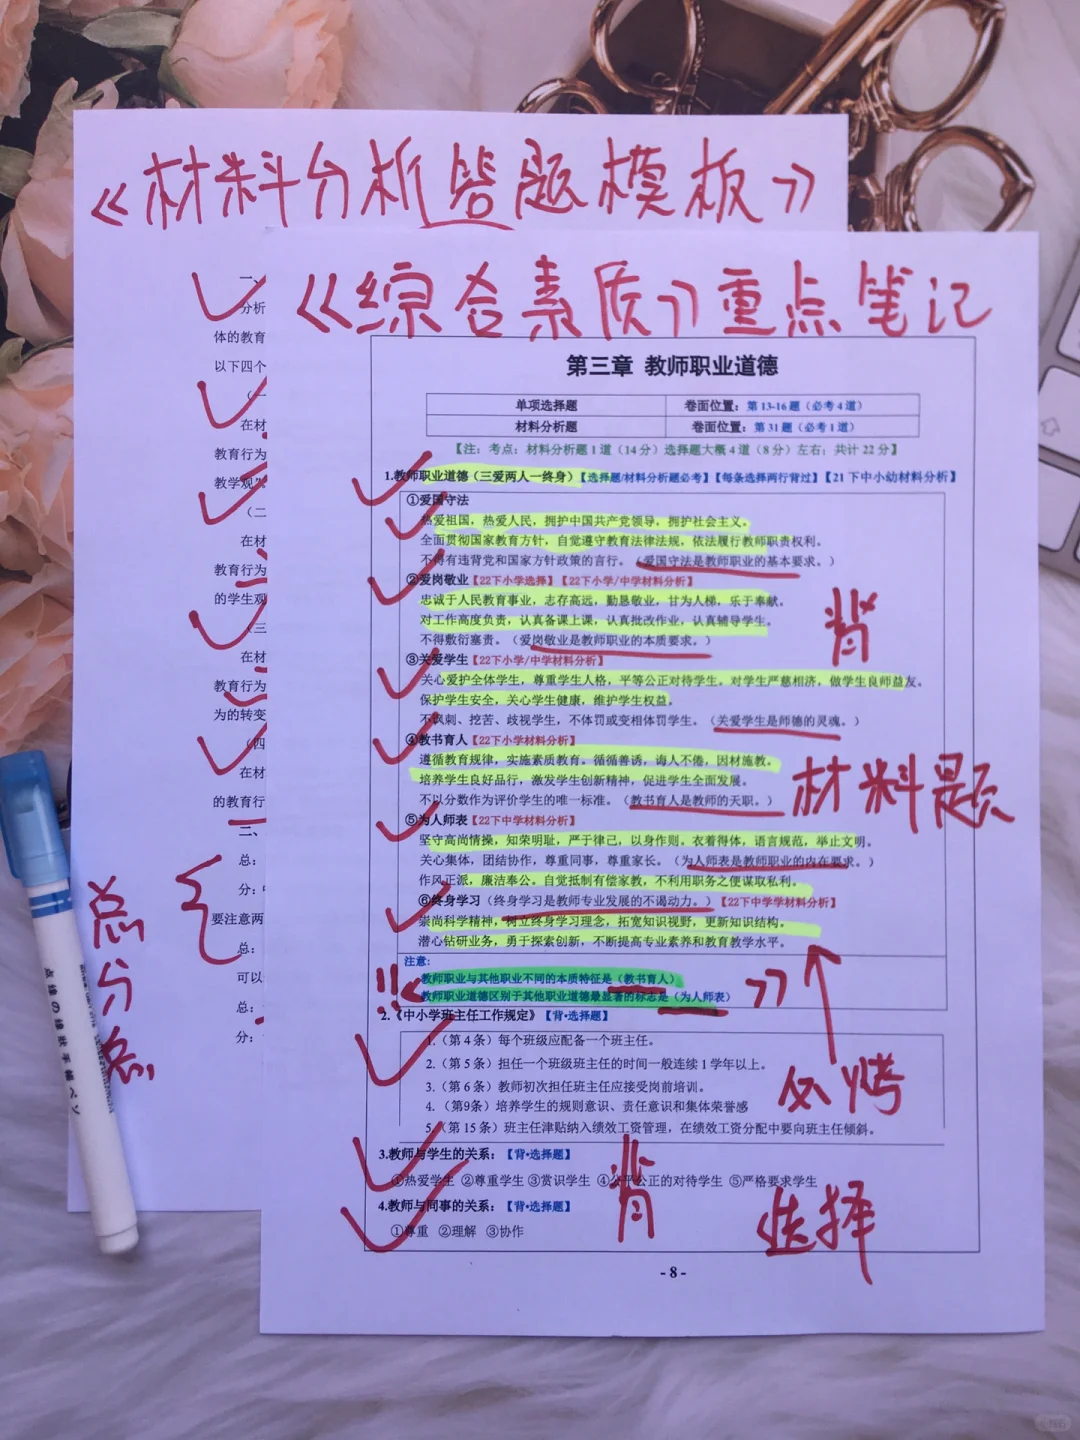 《材料分析答题模板》
《综合素质》重点笔记
一、
分析
体的教育
以下四个
（一
在材
教育行为
教学观”
（二
在材
教育行为
的学生观
（三
在材
教育行为
为的转变
（四
在材
的教育行
二、
总：
分：
要注意两
总：
可以
总：
分：
总分总
第三章 教师职业道德
单项选择题 卷面位置：第 13-16 题（必考 4 道）
材料分析题 卷面位置：第 31 题（必考 1 道）
【注：考点：材料分析题 1 道（14 分）选择题大概 4 道（8 分）左右；共计 22 分】
1.教师职业道德（三爱两人一终身）【选择题/材料分析题必考】【每条选择两行背过】【21 下中小幼材料分析】
①爱国守法
热爱祖国，热爱人民，拥护中国共产党领导，拥护社会主义。
全面贯彻国家教育方针，自觉遵守教育法律法规，依法履行教师职责权利。
不得有违背党和国家方针政策的言行。（爱国守法是教师职业的基本要求。）
②爱岗敬业【22下小学选择】【22下小学/中学材料分析】
忠诚于人民教育事业，志存高远，勤恳敬业，甘为人梯，乐于奉献。
对工作高度负责，认真备课上课，认真批改作业，认真辅导学生。
不得敷衍塞责。（爱岗敬业是教师职业的本质要求。）
背
③关爱学生【22下小学/中学材料分析】
关心爱护全体学生，尊重学生人格，平等公正对待学生。对学生严慈相济，做学生良师益友。
保护学生安全，关心学生健康，维护学生权益。
不讽刺、挖苦、歧视学生，不体罚或变相体罚学生。（关爱学生是师德的灵魂。）
④教书育人【22下小学材料分析】
遵循教育规律，实施素质教育。循循善诱，诲人不倦，因材施教。
培养学生良好品行，激发学生创新精神，促进学生全面发展。
不以分数作为评价学生的唯一标准。（教书育人是教师的天职。）
材料题
⑤为人师表【22下中学材料分析】
坚守高尚情操，知荣明耻，严于律己，以身作则。衣着得体，语言规范，举止文明。
关心集体，团结协作，尊重同事，尊重家长。（为人师表是教师职业的内在要求。）
作风正派，廉洁奉公。自觉抵制有偿家教，不利用职务之便谋取私利。
⑥终身学习（终身学习是教师专业发展的不竭动力。）【22下中学学材料分析】
崇尚科学精神，树立终身学习理念，拓宽知识视野，更新知识结构。
潜心钻研业务，勇于探索创新，不断提高专业素养和教育教学水平。
注意：
教师职业与其他职业不同的本质特征是（教书育人）
教师职业道德区别于其他职业道德最显著的标志是（为人师表）
!!《 》
2.《中小学班主任工作规定》【背•选择题】
1.（第 4 条）每个班级应配备一个班主任。
2.（第 5 条）担任一个班级班主任的时间一般连续 1 学年以上。
3.（第 6 条）教师初次担任班主任应接受岗前培训。
4.（第9条）培养学生的规则意识、责任意识和集体荣誉感
5.（第 15 条）班主任津贴纳入绩效工资管理，在绩效工资分配中要向班主任倾斜。
必烤
3.教师与学生的关系：【背•选择题】
①热爱学生 ②尊重学生 ③赏识学生 ④公平公正的对待学生 ⑤严格要求学生
4.教师与同事的关系：【背•选择题】
①尊重 ②理解 ③协作
背
选择
- 8 -